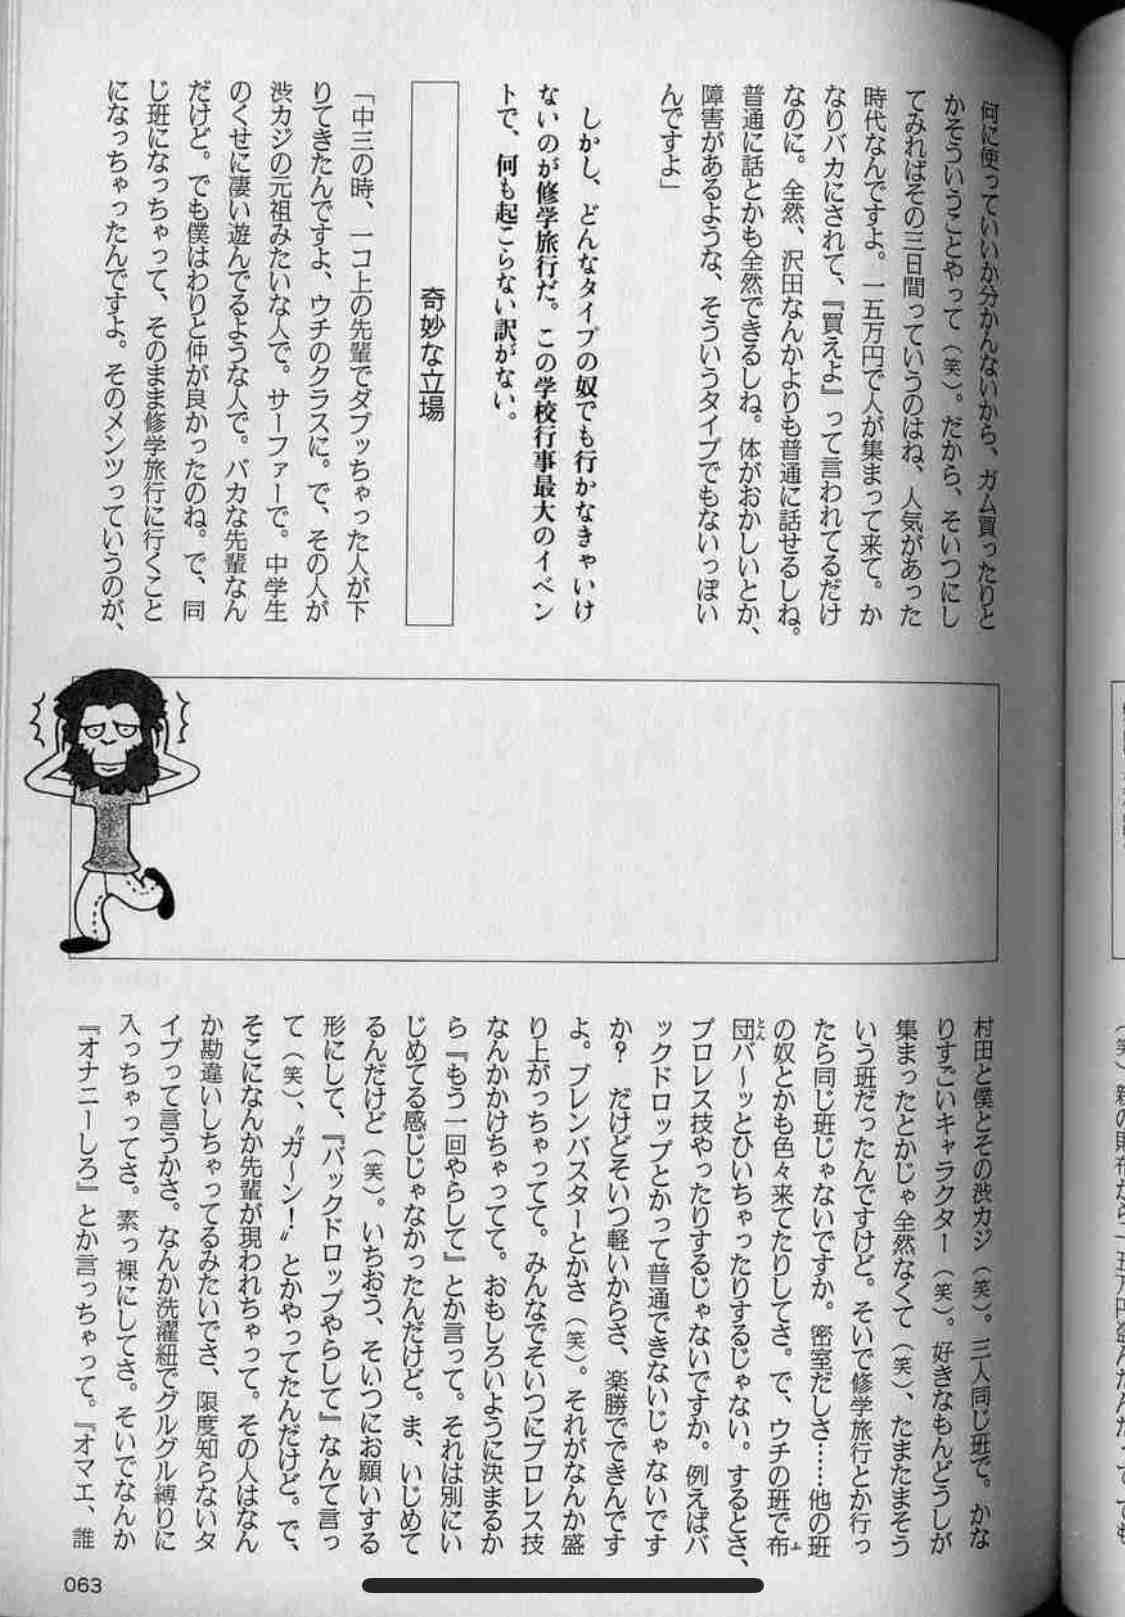 何に使っていいか分かんないから、ガム買ったりと
かそういうことやって（笑）。だから、そいつにし
てみればその三日間っていうのはね、人気があった
時代なんですよ。一五万円で人が集まって来て。か
なりバカにされて、『買えよ』って言われてるだけ
なのに。全然、沢田なんかよりも普通に話せるしね。
普通に話とかも全然できるしね。体がおかしいとか、
障害があるような、そういうタイプでもないっぽい
んですよ」
しかし、どんなタイプの奴でも行かなきゃいけ
ないのが修学旅行だ。この学校行事最大のイベン
トで、何も起こらない訳がない。
奇妙な立場
「中三の時、一コ上の先輩でダブッちゃった人が下
りてきたんですよ、ウチのクラスに。で、その人が
渋カジの元祖みたいな人で。サーファーで。中学生
のくせに凄い遊んでるような人で。バカな先輩なん
だけど。でも僕はわりと仲が良かったのね。で、同
じ班になっちゃって、そのまま修学旅行に行くこと
になっちゃったんですよ。そのメンツっていうのが、
村田と僕とその渋カジ（笑）。三人同じ班で。かな
りすごいキャラクター（笑）。好きなもんどうしが
集まったとかじゃ全然なくて（笑）、たまたまそう
いう班だったんですけど。そいで修学旅行とか行っ
たら同じ班じゃないですか。密室だしさ……他の班
の奴とかも色々来てたりしてさ。で、ウチの班で布
団バ〜ッとひいちゃったりするじゃない。するとさ、
プロレス技やったりするじゃないですか。例えばバ
ックドロップとかって普通できないじゃないです
か？　だけどそいつ軽いからさ、楽勝でできんです
よ。ブレンバスターとかさ（笑）。それがなんか盛
り上がっちゃってて。みんなでそいつにプロレス技
なんかかけちゃってて。おもしろいように決まるか
ら『もう一回やらして』とか言って。それは別にい
じめてる感じじゃなかったんだけど。ま、いじめて
るんだけど（笑）。いちおう、そいつにお願いする
形にして、『バックドロップやらして』なんて言っ
て（笑）、〝ガ〜ン！〟とかやってたんだけど。で、
そこになんか先輩が現われちゃって。その人はなん
か勘違いしちゃってるみたいでさ、限度知らないタ
イプって言うかさ。なんか洗濯紐でグルグル縛りに
入っちゃってさ。素っ裸にしてさ。そいでなんか
『オナニーしろ』とか言っちゃって。『オマエ、誰
063